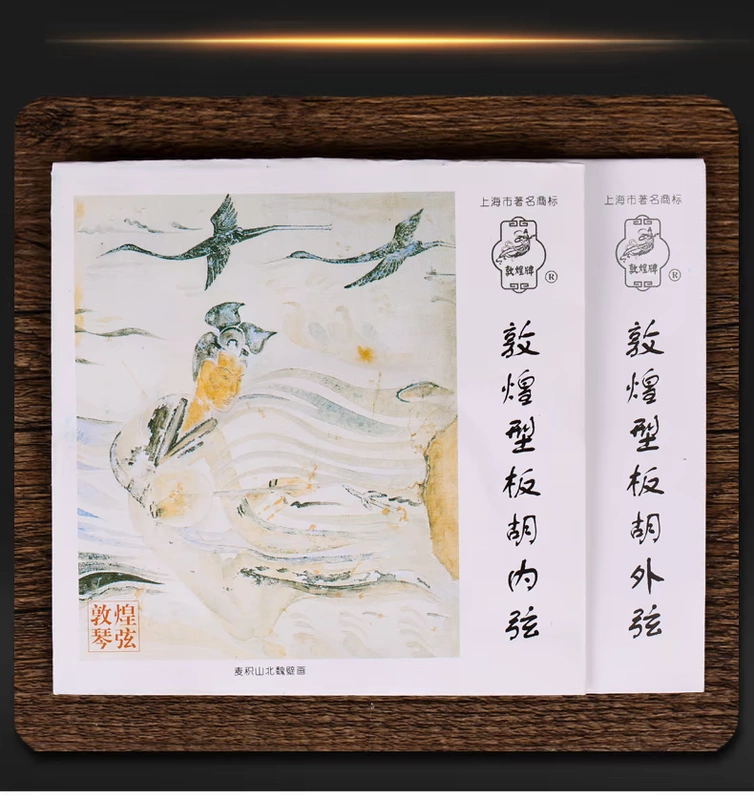 上海市著名商标
敦煌牌
®
敦煌型板胡内弦
敦煌
琴弦
麦积山北魏壁画
上海市著名商标
敦煌牌
®
敦煌型板胡外弦